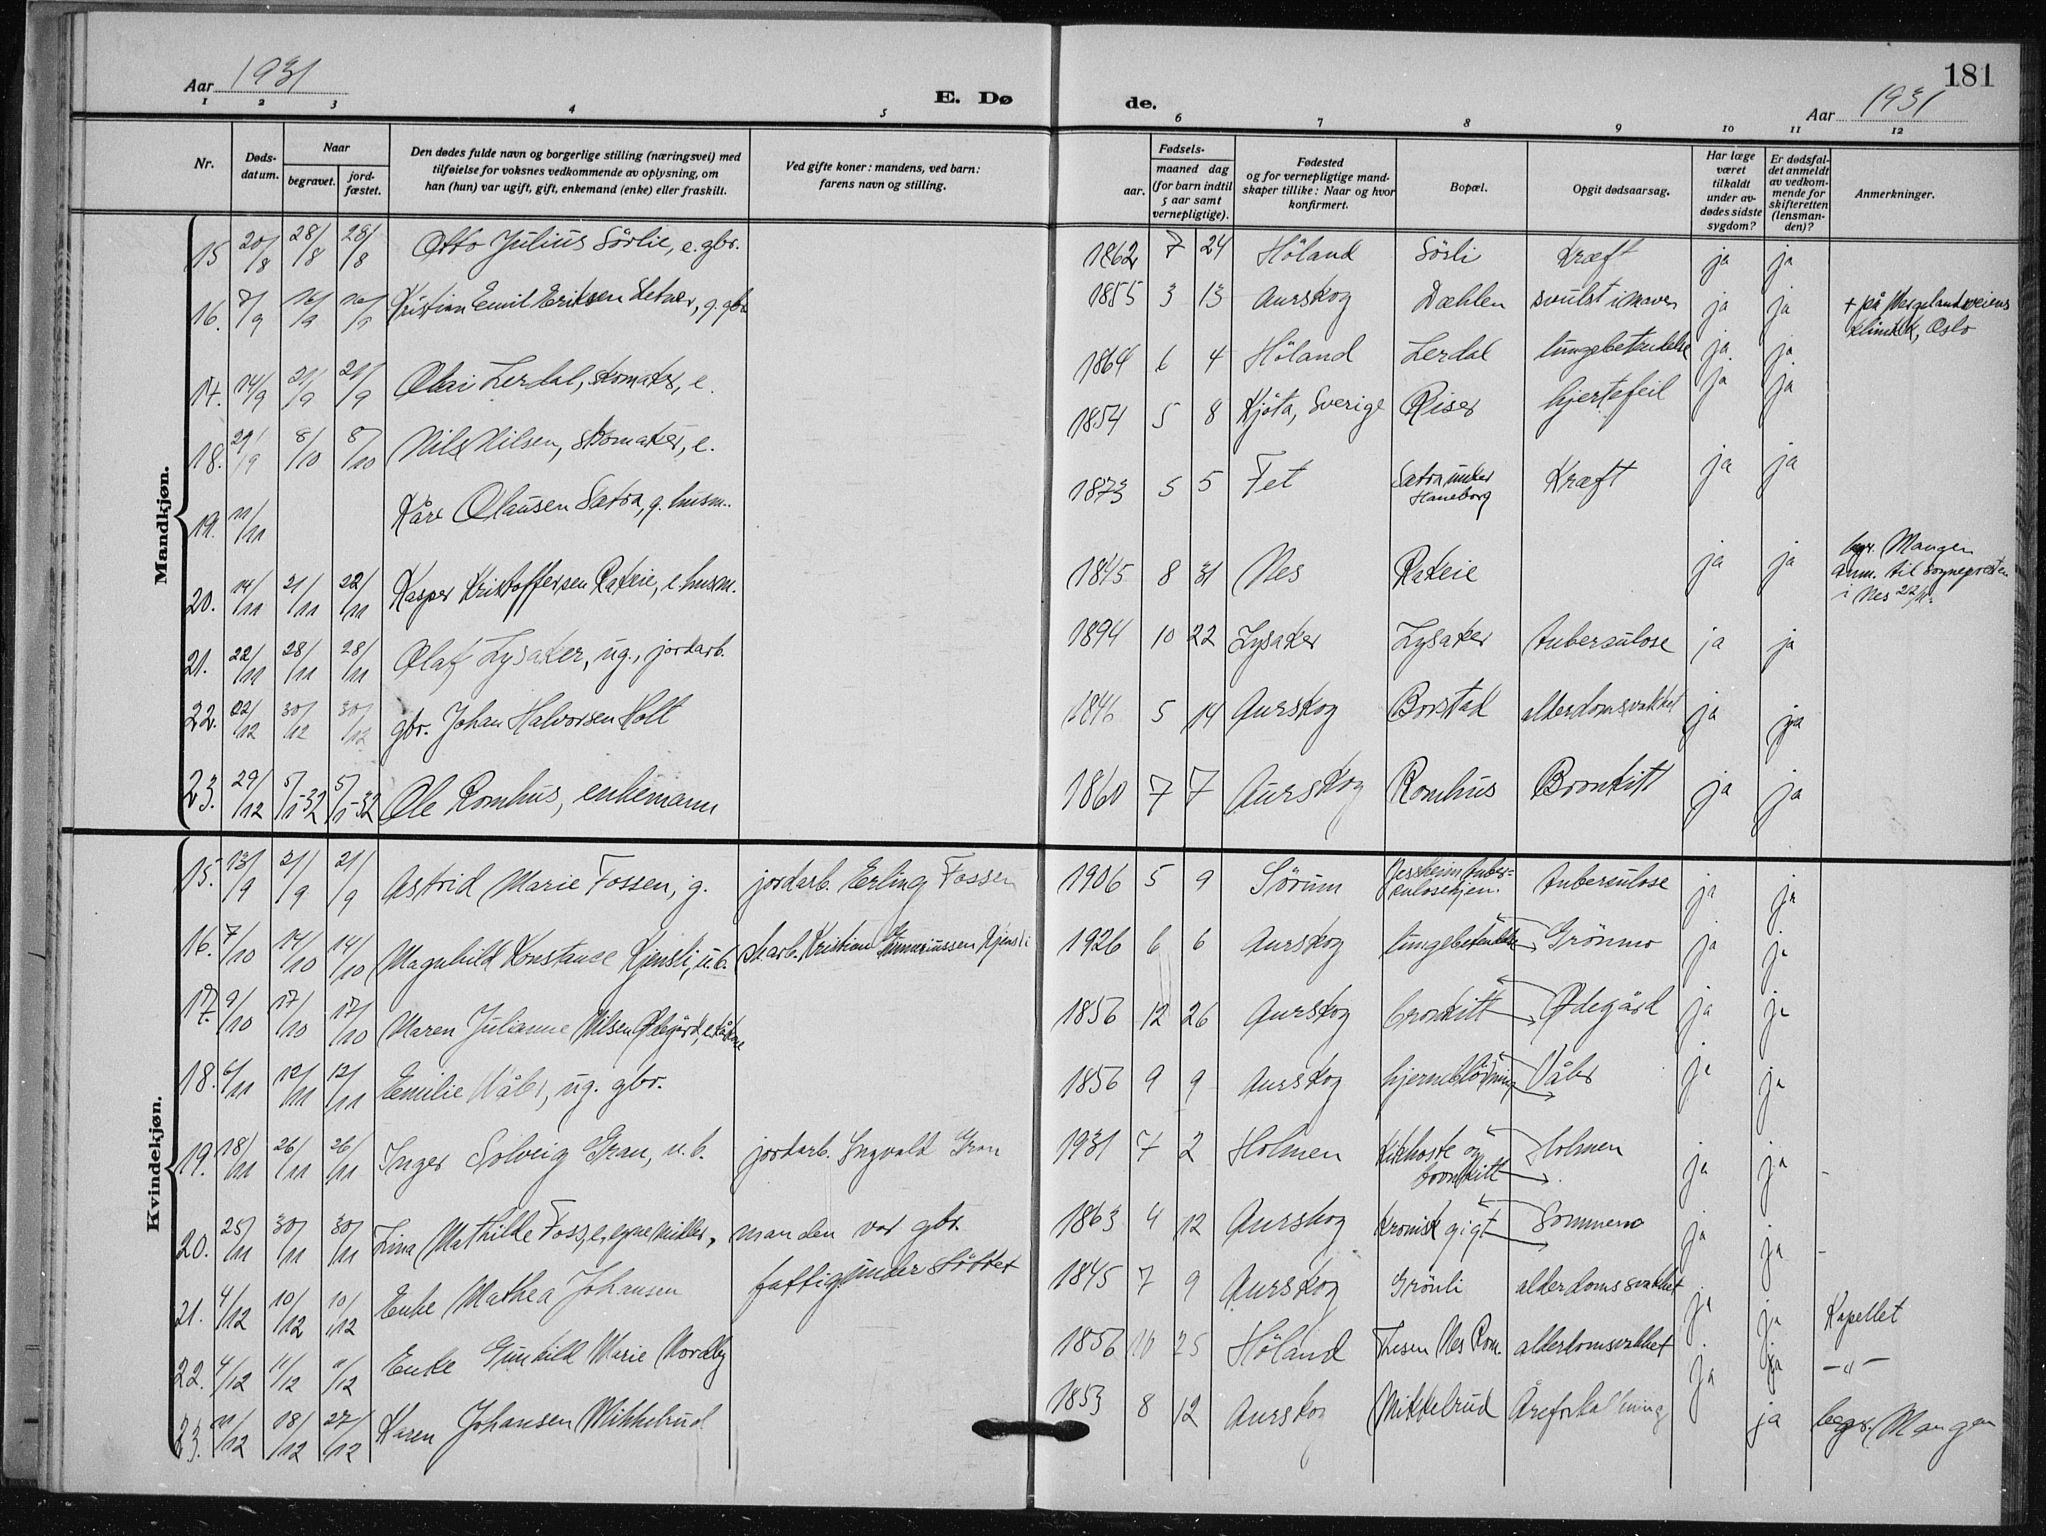 Aar 1931
E. Dø
de.
Aar 1931
181
1 2 3 4 5 6 7 8 9 10 11 12
Nr.
Døds-
datum.
Naar
begravet.
jord-
fæstet.
Den dødes fulde navn og borgerlige stilling (næringsvei) med
tilføielse for voksnes vedkommende av oplysning, om
han (hun) var ugift, gift, enkemand (enke) eller fraskilt.
Ved gifte koner: mandens, ved barn:
farens navn og stilling.
Fødsels-
aar.
maaned dag
(for barn indtil
5 aar samt
vernepligtige).
Fødested
og for vernepligtige mand-
skaper tillike: Naar og hvor
konfirmert.
Bopæl.
Opgit dødsaarsag.
Har læge
været
tilkaldt
under av-
dødes sidste
sygdom?
Er dødsfal-
det anmeldt
av vedkom-
mende for
skifteretten
(lensman-
den)?
Anmerkninger.
Mandkjøn.
15 20/8 28/8 28/8 Otto Julius Sörlie, e. gbr. 1862 7 24 Höland Sörli Kræft ja ja
16. 7/9 16/9 16/9 Kristian Emil Eriksen Setner, g. gbr. 1855 3 13 Aurskog Dæhlen svulst i maven ja ja + på Wergelandsveiens
klinikk, Oslo
17. 14/9 21/9 21/9 Olai Lerdal, skomaker, e. 1864 6 4 Höland Lerdal lungebetendelse ja ja
18. 29/9 8/10 8/10 Nils Nilsen, skomaker, e. 1854 5 8 Kjöta, Sverige Riser hjertefeil ja ja
19. 11/11 Kåre Olausen Satra, g. husm. 1873 5 5 Fet Satra under
Haneborg Kræft ja ja
20. 14/11 21/11 22/11 Kasper Kristoffersen Rakeie, e. husm. 1845 8 31 Nes Rakeie ja ja begr. Mangen
Anm. til sognepresten
i Nes 22/11
21. 22/11 28/11 28/11 Olaf Lysaker, ug., jordarb. 1894 10 22 Lysaker Lysaker tuberculose ja ja
22. 22/12 30/12 30/12 gbr. Johan Halvorsen Holt 1846 5 14 Aurskog Borstad alderdomsvakhet ja ja
23. 29/12 5/1-32 5/1-32 Ole Romhus, enkemann 1860 7 7 Aurskog Romhus Bronkitt ja ja
Kvindekjøn.
15. 13/9 21/9 21/9 Astrid Marie Fossen, g. jordarb. Erling Fossen 1906 5 9 Sörum Jessheim tuber-
culosehjem. tuberculose ja ja
16. 7/10 14/10 14/10 Magnhild Konstance Kjensli, u.b. Kristian Kjensli 1926 6 6 Aurskog lungebetendelse Grönmo ja ja
17. 9/10 17/10 17/10 Maren Julianne Nilsen Ödegård, e. 1856 12 26 Aurskog bronkitt Ødegård ja ja
18. 6/11 12/11 12/11 Emilie Våler, ug. gbr. 1856 9 9 Aurskog hjerneblödning Våler ja ja
19. 18/11 26/11 26/11 Inger Solveig Gran, u.b. jordarb. Ingvald Gran 1931 7 2 Holmen Kikhoste og
bronkitt Holmen ja ja -
20. 25/11 30/11 30/11 Lina Mathilde Foss, e, egne midler, manden var gbr. 1863 4 12 Aurskog kronisk gigt Sommero ja ja -
21. 4/12 10/12 10/12 Enke Mathea Johansen fattigunderstöttet 1845 7 9 Aurskog Grönli alderdomssvakhet ja ja Kapellet
22. 4/12 11/12 11/12 Enke Gunhild Marie Nordby 1856 10 25 Höland Nes Rom. alderdomsvakhet ja ja -"-
23. 11/12 18/12 27/12 Karen Johansen Mikkelrud 1853 8 12 Aurskog Mikkelrud Åreforkalkning ja begr. Mangen